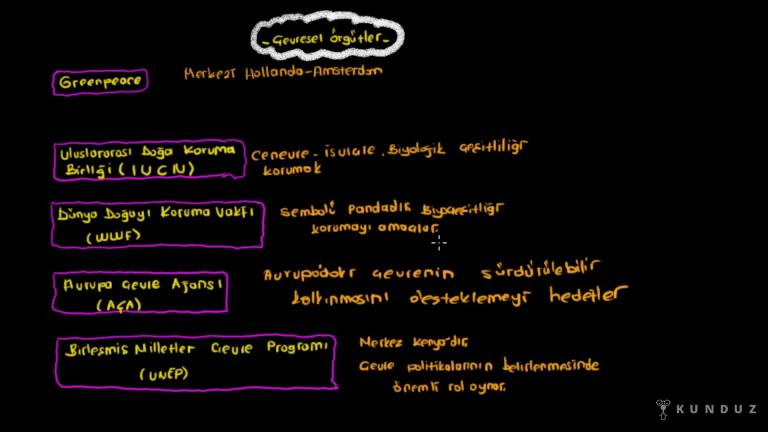 - Çevresel Örgütler -
Greenpeace
Merkezi Hollanda-Amsterdam
Uluslararası Doğa Koruma
Birliği (IUCN)
Cenevre - İsviçre. Biyolojik çeşitliliği
korumak
Dünya Doğayı Koruma Vakfı
(WWF)
Sembolü pandadır. Biyoçeşitliliği
korumayı amaçlar.
Avrupa Çevre Ajansı
(AÇA)
Avrupadaki çevrenin sürdürülebilir
kalkınmasını desteklemeyi hedefler
Birleşmiş Milletler Çevre Programı
(UNEP)
Merkez Kenya'dır.
Çevre politikalarının belirlenmesinde
önemli rol oynar.
KUNDUZ